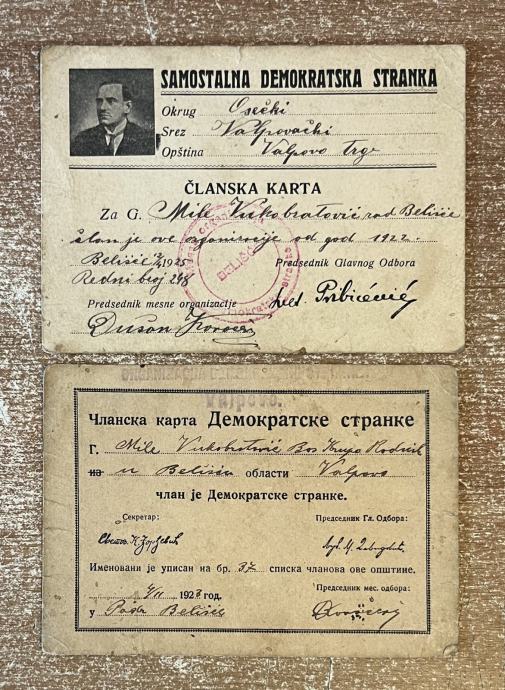 SAMOSTALNA DEMOKRATSKA STRANKA
Okrug Osečki
Srez Valpovački
Opština Valpovo Trg
ČLANSKA KARTA
Za G. Mile Vukobratović rad Belišće
član je ove organizacije od god 1922
Belišće 1925
Predsednik Glavnog Odbora
Redni broj
Svet. Pribićević
Predsednik mesne organizacije
Dušan
BELIŠĆE
Valpovo.
Чланска карта Демократске странке
Г. Mile Vukobratović Bos Krupa Radnik
на u Belišću области Valpovo
члан је Демократске странке.
Секретар:
Председник Гл. Одбора:
Именовани је уписан на бр. 37 списка чланова ове општине.
192 год.
Председник мес. одбора:
у Belišće